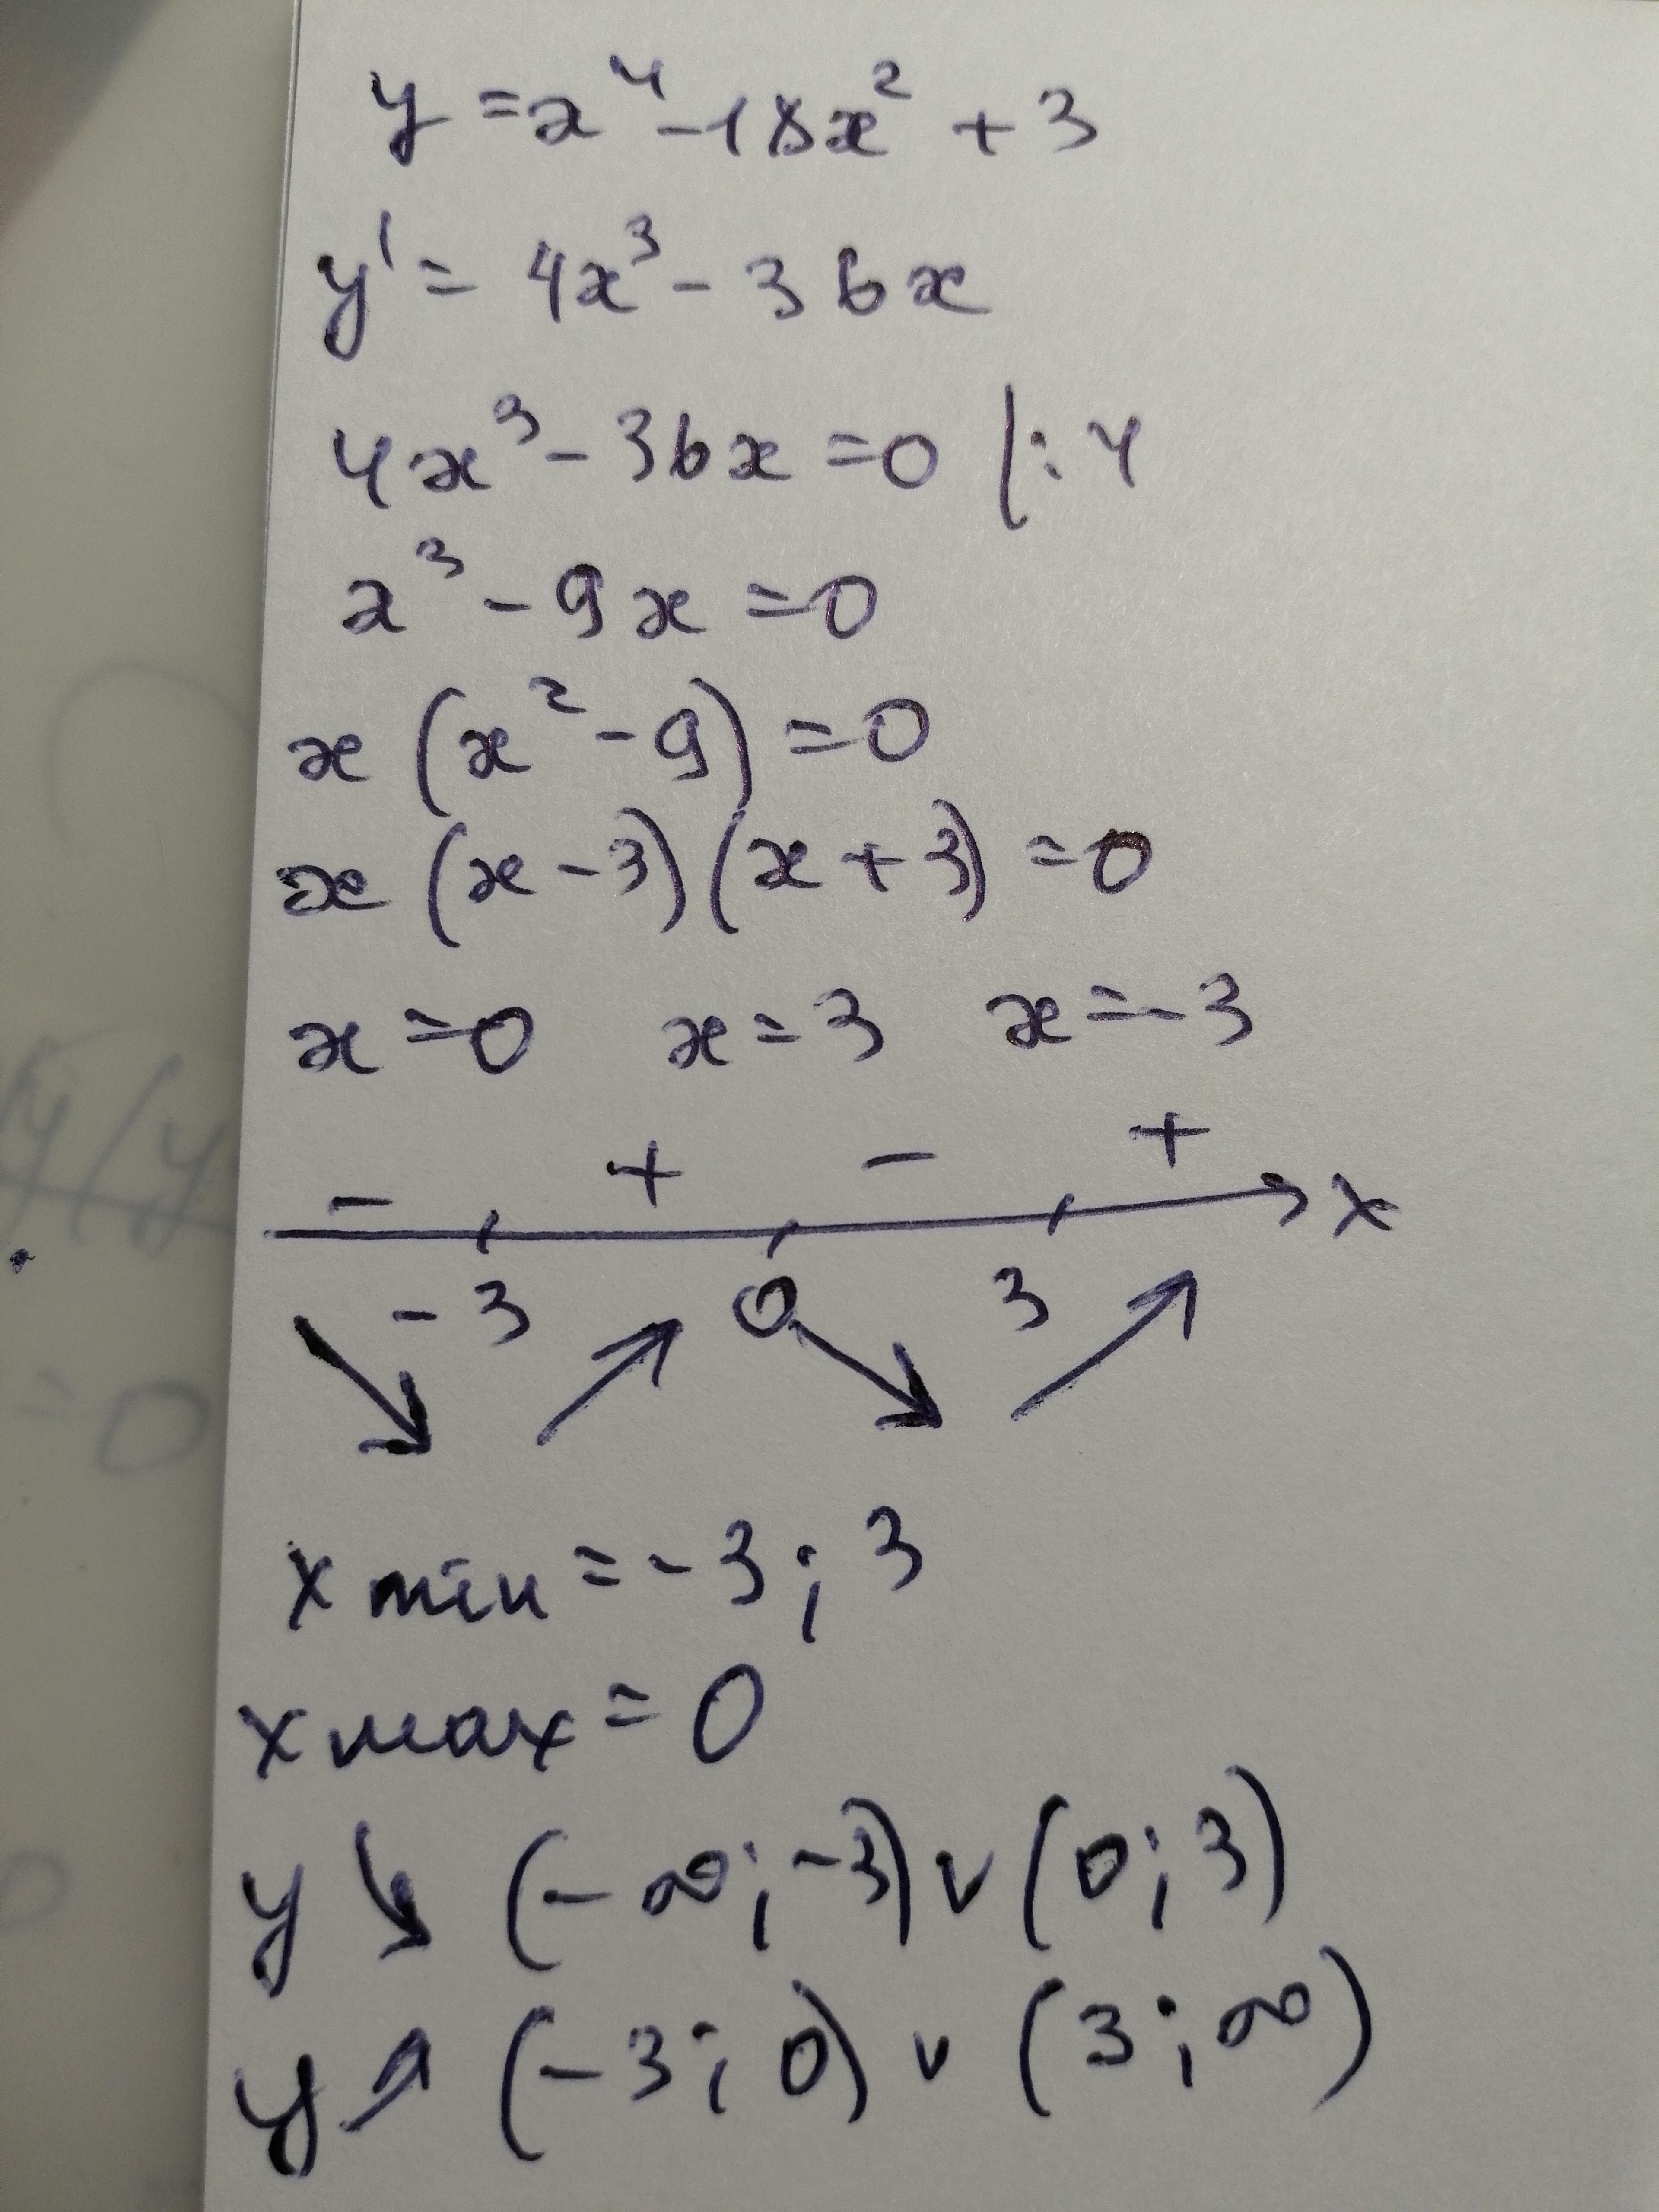 y = x⁴ - 18x² + 3
y' = 4x³ - 36x
4x³ - 36x = 0 |: 4
x³ - 9x = 0
x (x² - 9) = 0
x (x - 3) (x + 3) = 0
x = 0 x = 3 x = -3
- + - +
x
-3 0 3
x min = -3; 3
x max = 0
y ↘ (-∞; -3) ∨ (0; 3)
y ↗ (-3; 0) ∨ (3; ∞)
= 0